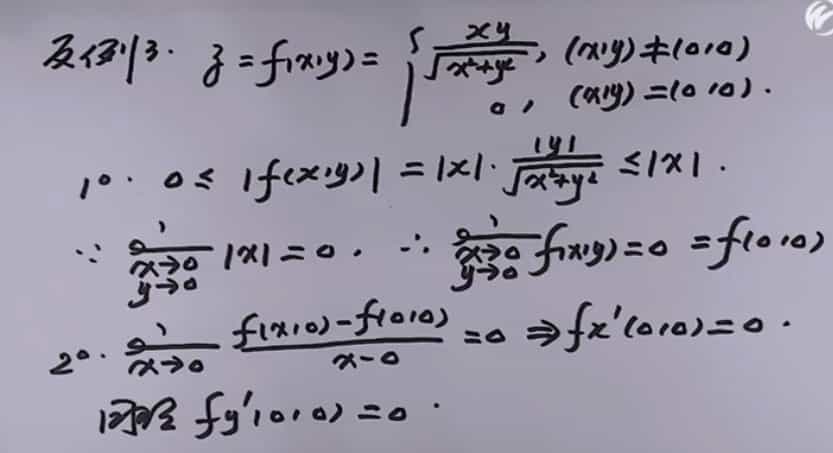 反例3. z = f(x,y) = { xy/√(x²+y²), (x,y) ≠ (0,0)
0, (x,y) = (0,0).
1°. 0 ≤ |f(x,y)| = |x|·|y|/√(x²+y²) ≤ |x|.
∵ lim x→0 y→0 |x| = 0. ∴ lim x→0 y→0 f(x,y) = 0 = f(0,0)
2°. lim x→0 (f(x,0) - f(0,0))/(x-0) = 0 ⇒ fx'(0,0) = 0.
同理 fy'(0,0) = 0.